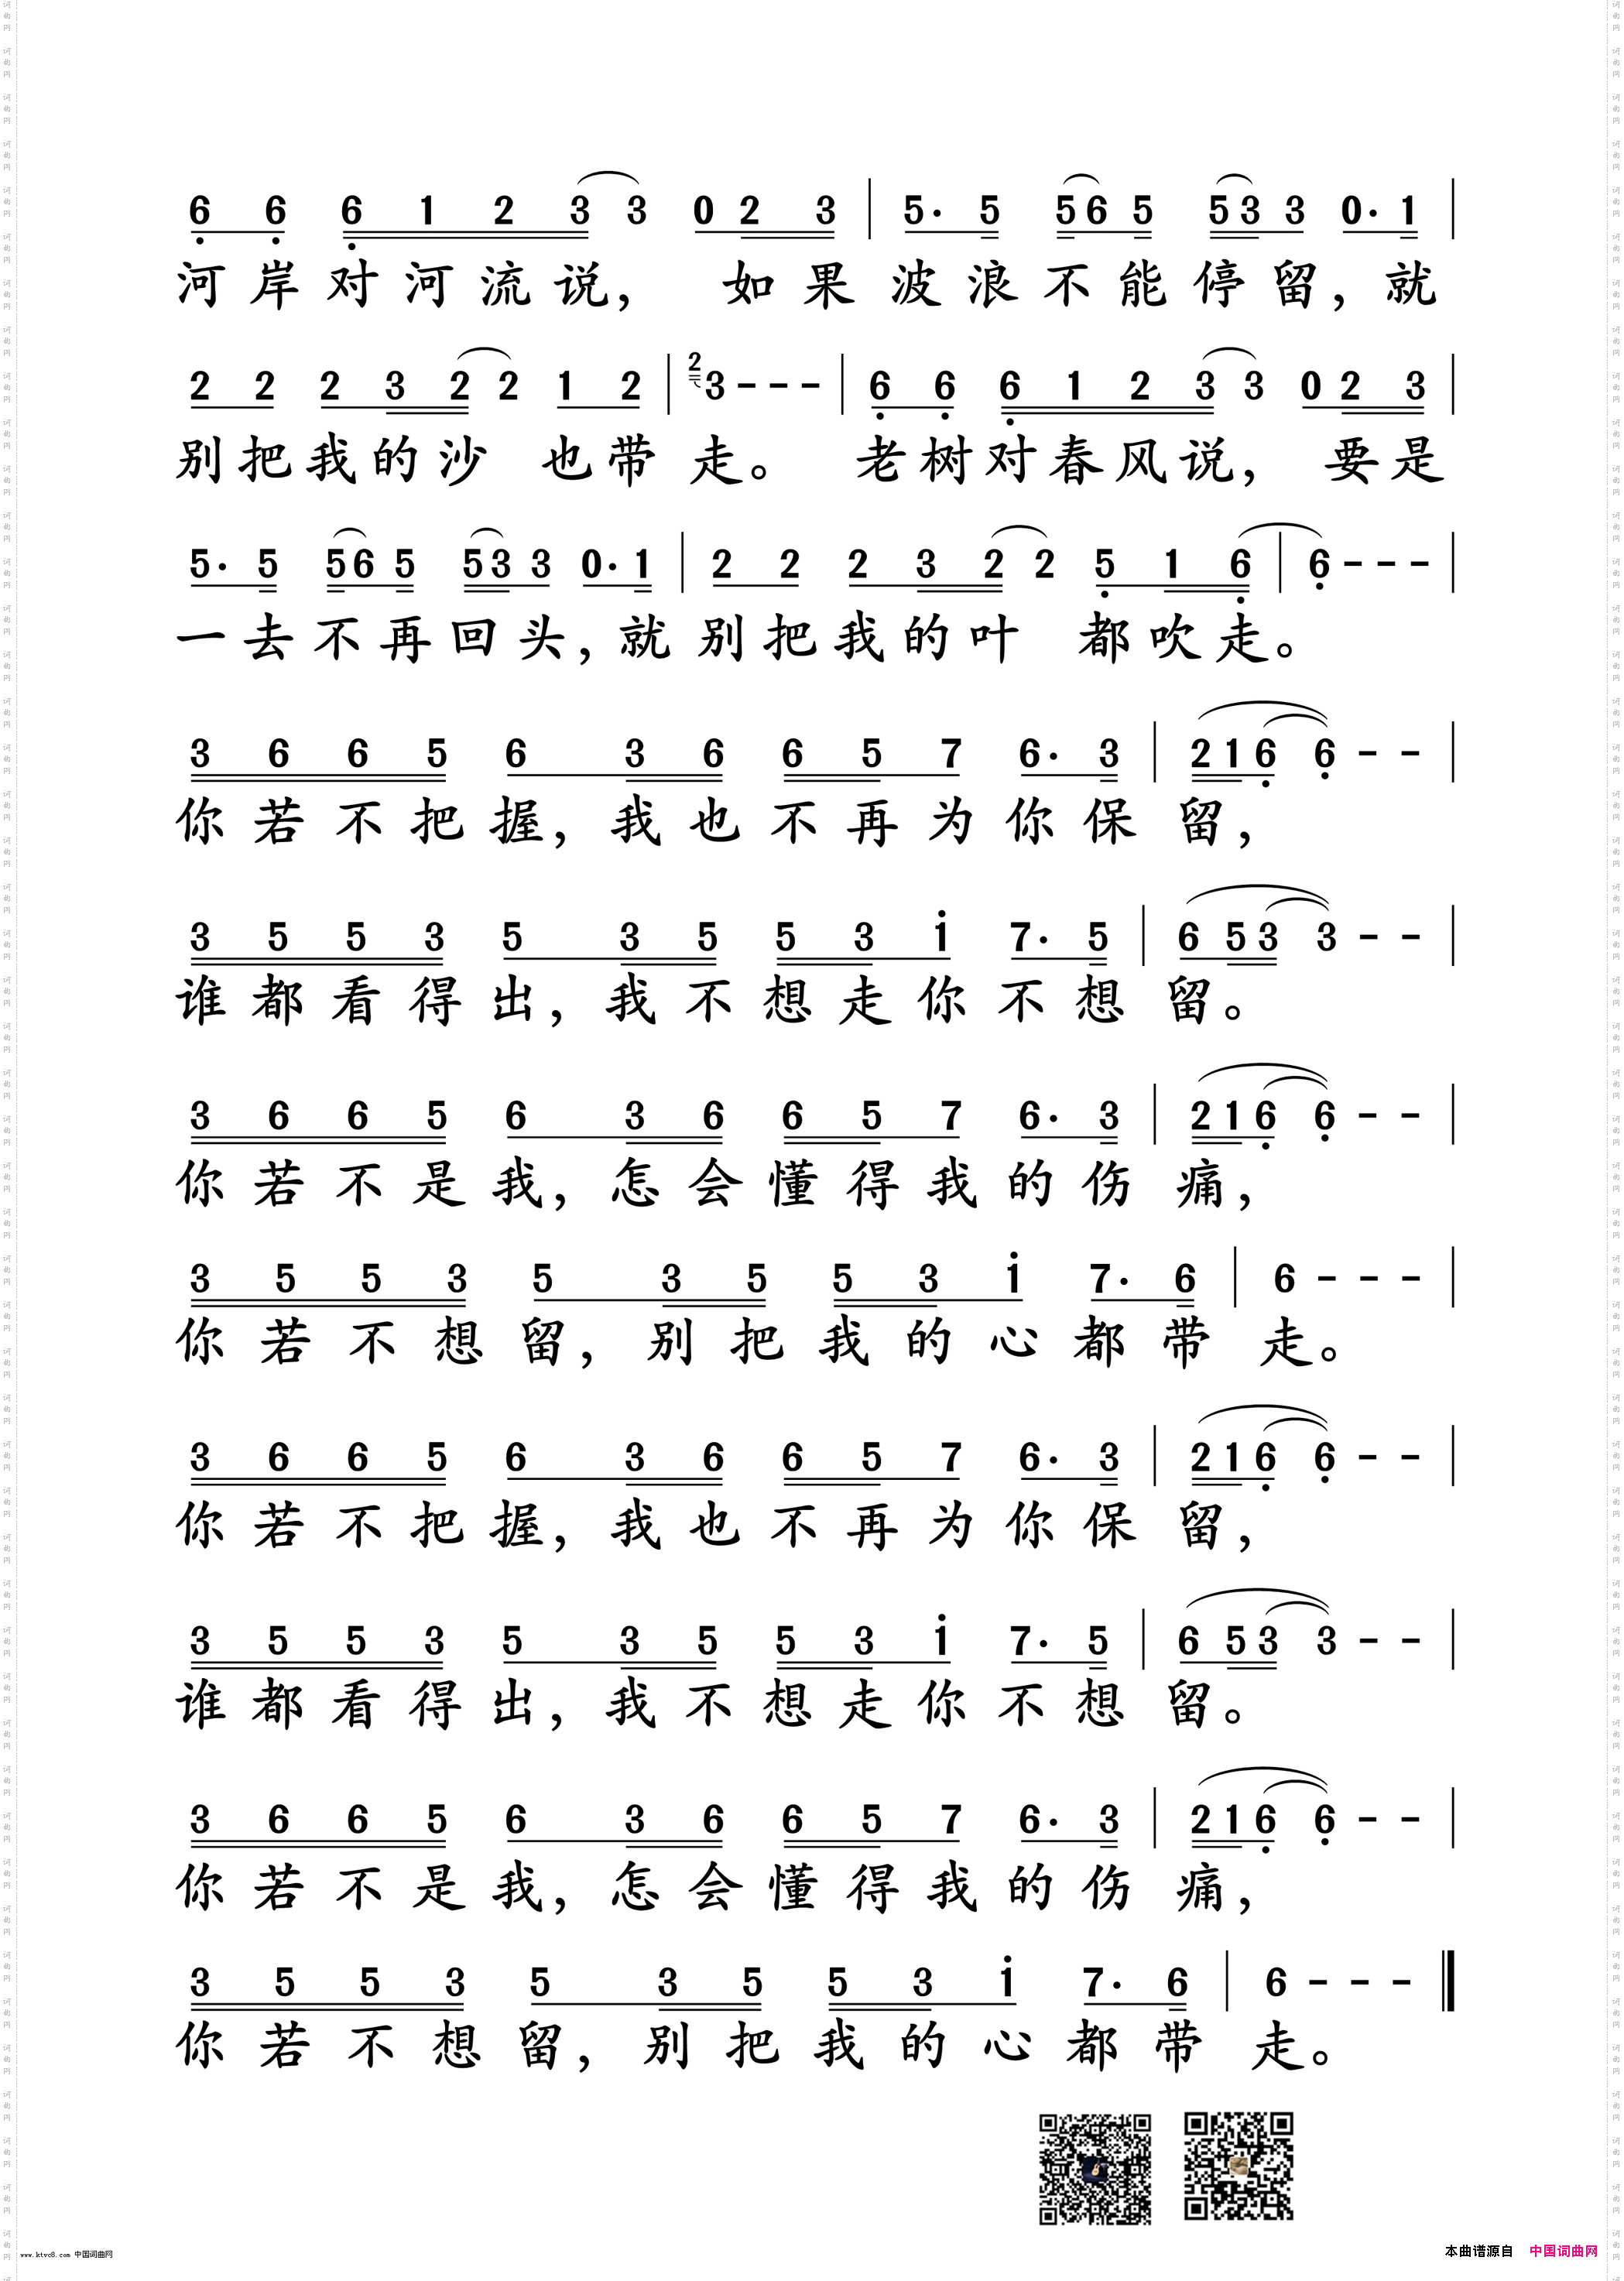 6 6 6 1 2 3 3 0 2 3 | 5· 5 5 6 5 5 3 3 0· 1 |
河岸对河流说， 如果波浪不能停留，就
2 2 2 3 2 2 1 2 | 2 3 - - - | 6 6 6 1 2 3 3 0 2 3 |
别把我的沙 也带走。 老树对春风说， 要是
5· 5 5 6 5 5 3 3 0· 1 | 2 2 2 3 2 2 5 1 6 | 6 - - - |
一去不再回头，就别把我的叶 都吹走。
3 6 6 5 6 3 6 6 5 7 6· 3 | 2 1 6 6 - - |
你若不把握，我也不再为你保留，
3 5 5 3 5 3 5 5 3 i 7· 5 | 6 5 3 3 - - |
谁都看得出，我不想走你不想留。
3 6 6 5 6 3 6 6 5 7 6· 3 | 2 1 6 6 - - |
你若不是我，怎会懂得我的伤痛，
3 5 5 3 5 3 5 5 3 i 7· 6 | 6 - - - |
你若不想留，别把我的心都带走。
3 6 6 5 6 3 6 6 5 7 6· 3 | 2 1 6 6 - - |
你若不把握，我也不再为你保留，
3 5 5 3 5 3 5 5 3 i 7· 5 | 6 5 3 3 - - |
谁都看得出，我不想走你不想留。
3 6 6 5 6 3 6 6 5 7 6· 3 | 2 1 6 6 - - |
你若不是我，怎会懂得我的伤痛，
3 5 5 3 5 3 5 5 3 i 7· 6 | 6 - - - ‖
你若不想留，别把我的心都带走。
www.ktvc8.com 中国词曲网
本曲谱源自 中国词曲网